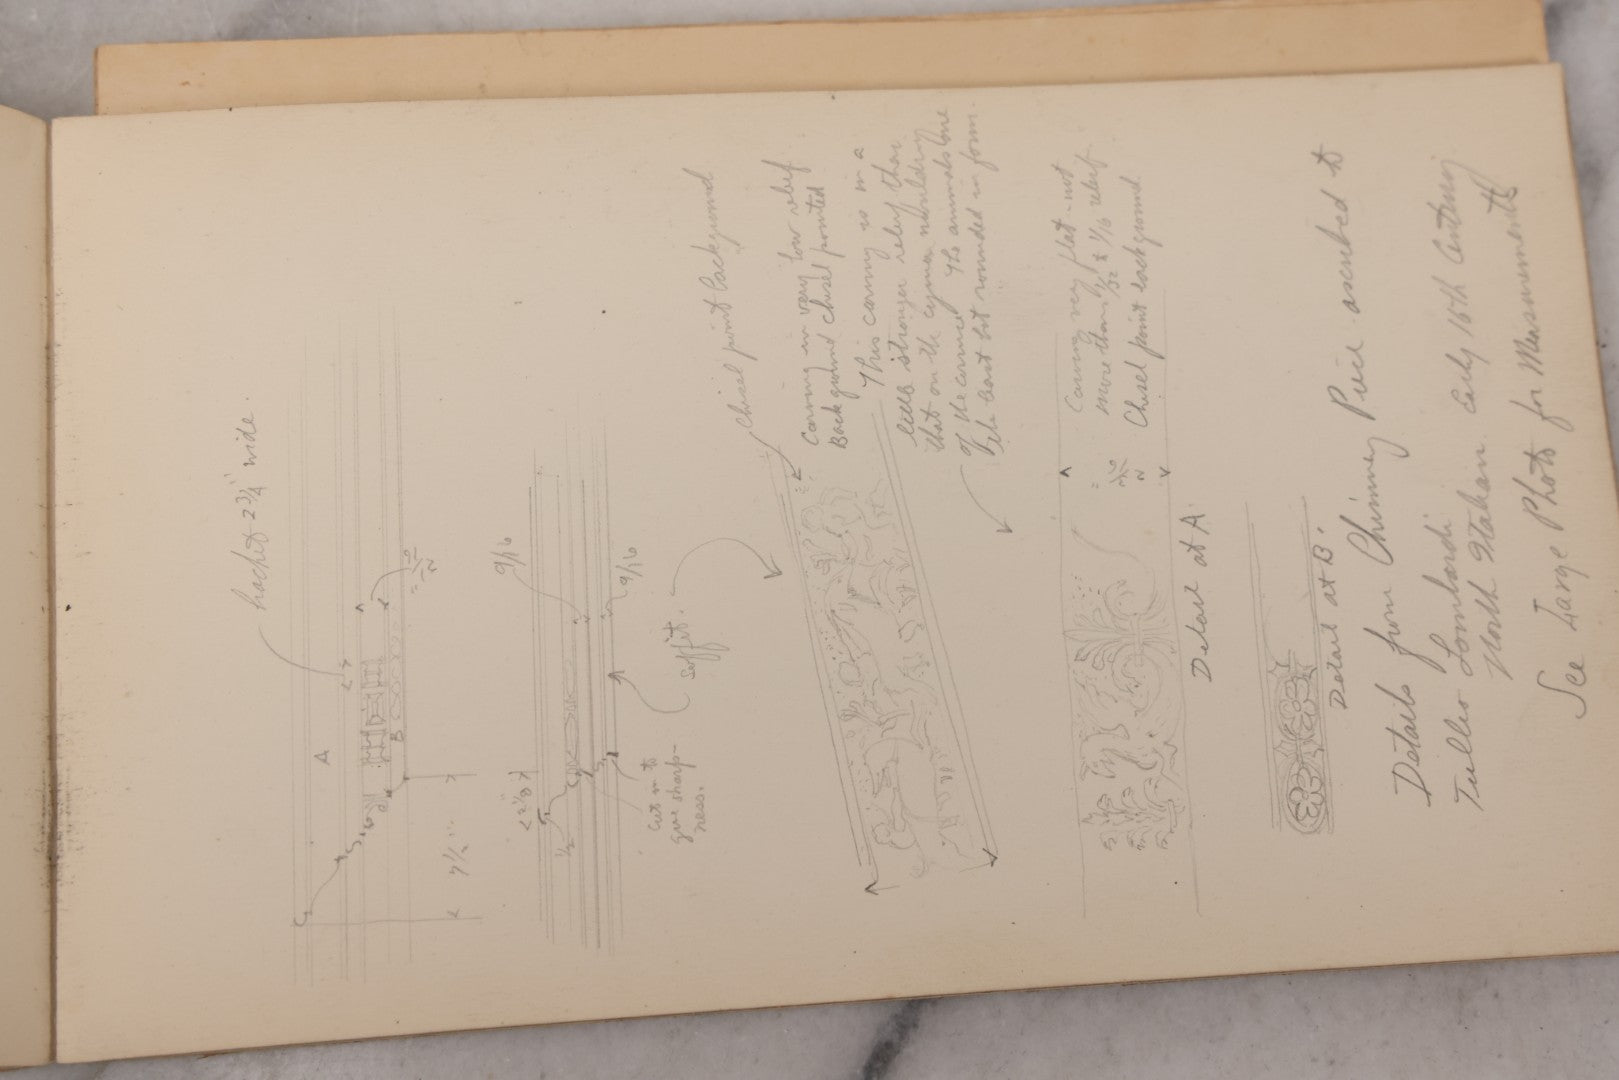 bracket 2 3/4" wide.
A
B
7 1/2"
9/16
2 1/8
1/2
9/16
Cuts in to
give sharp-
ness.
Soffit.
Chisel point background
Carving in very low relief
Background chisel pointed
This carving is in a
little stronger relief than
that on the cyma moulding
of the cornice. The animals bone
but rounded in form.
Carving very flat - not
more than 1/32 & 1/16 relief
Chisel point background
Detail at A
Detail at B.
Details from Chimney Piece ascribed to
Tullio Lombardi
North Italian Early 16th Century
See Large Photo for Measurements